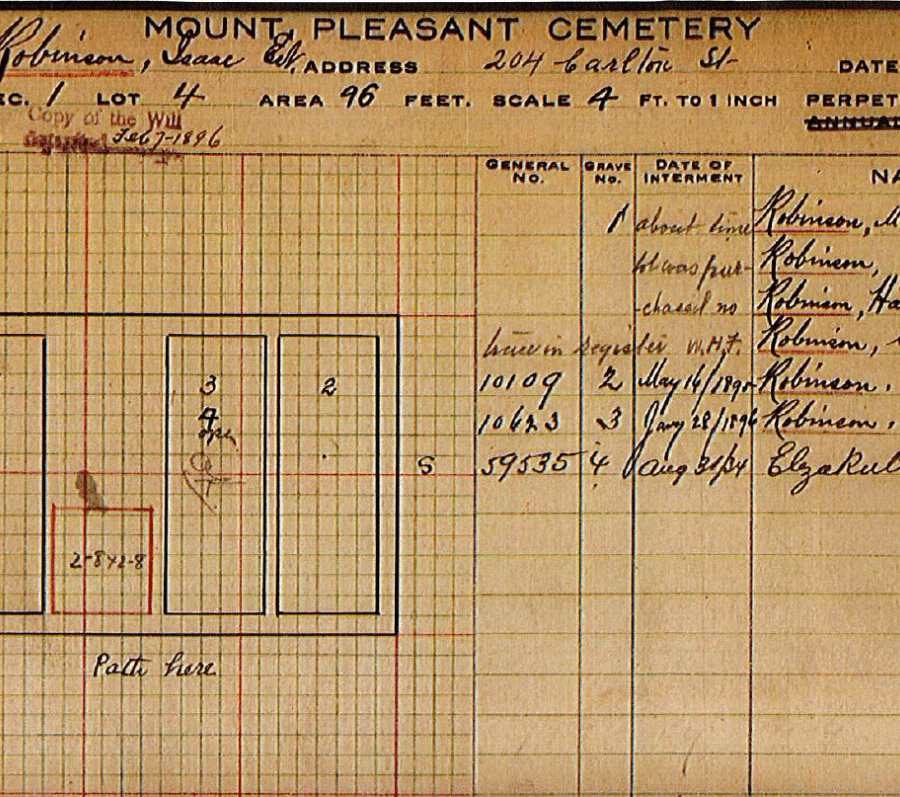 MOUNT PLEASANT CEMETERY
Robinson, Isaac Ed. ADDRESS 204 Carlton St- DATE
EC. 1 LOT 4 AREA 96 FEET. SCALE 4 FT. TO 1 INCH PERPET
ANNUAL
Copy of the Will
Feb 7-1896
GENERAL NO. GRAVE NO. DATE OF INTERMENT NA
1 about time Robinson, M
lot was pur- Robinson,
-chased no Robinson, Ha
trace in register W.H.F. Robinson,
10109 2 May 16/1890 Robinson.
10623 3 Jany 28/1896 Robinson.
59535 4 Aug 31/34 Elza Rul
3 2
4
open
S
2-8x2-8
Path here